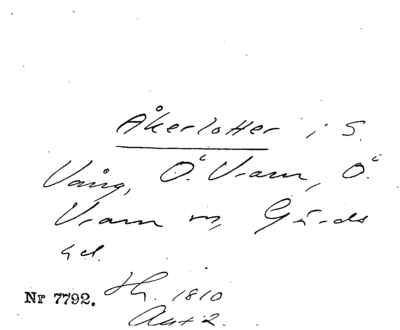 Åkerlotter i S.
Vång, Ö. Vram, Ö.
Vram sn, Gärds
hd.
Nr 7792. Hl. 1810
Akt 2.